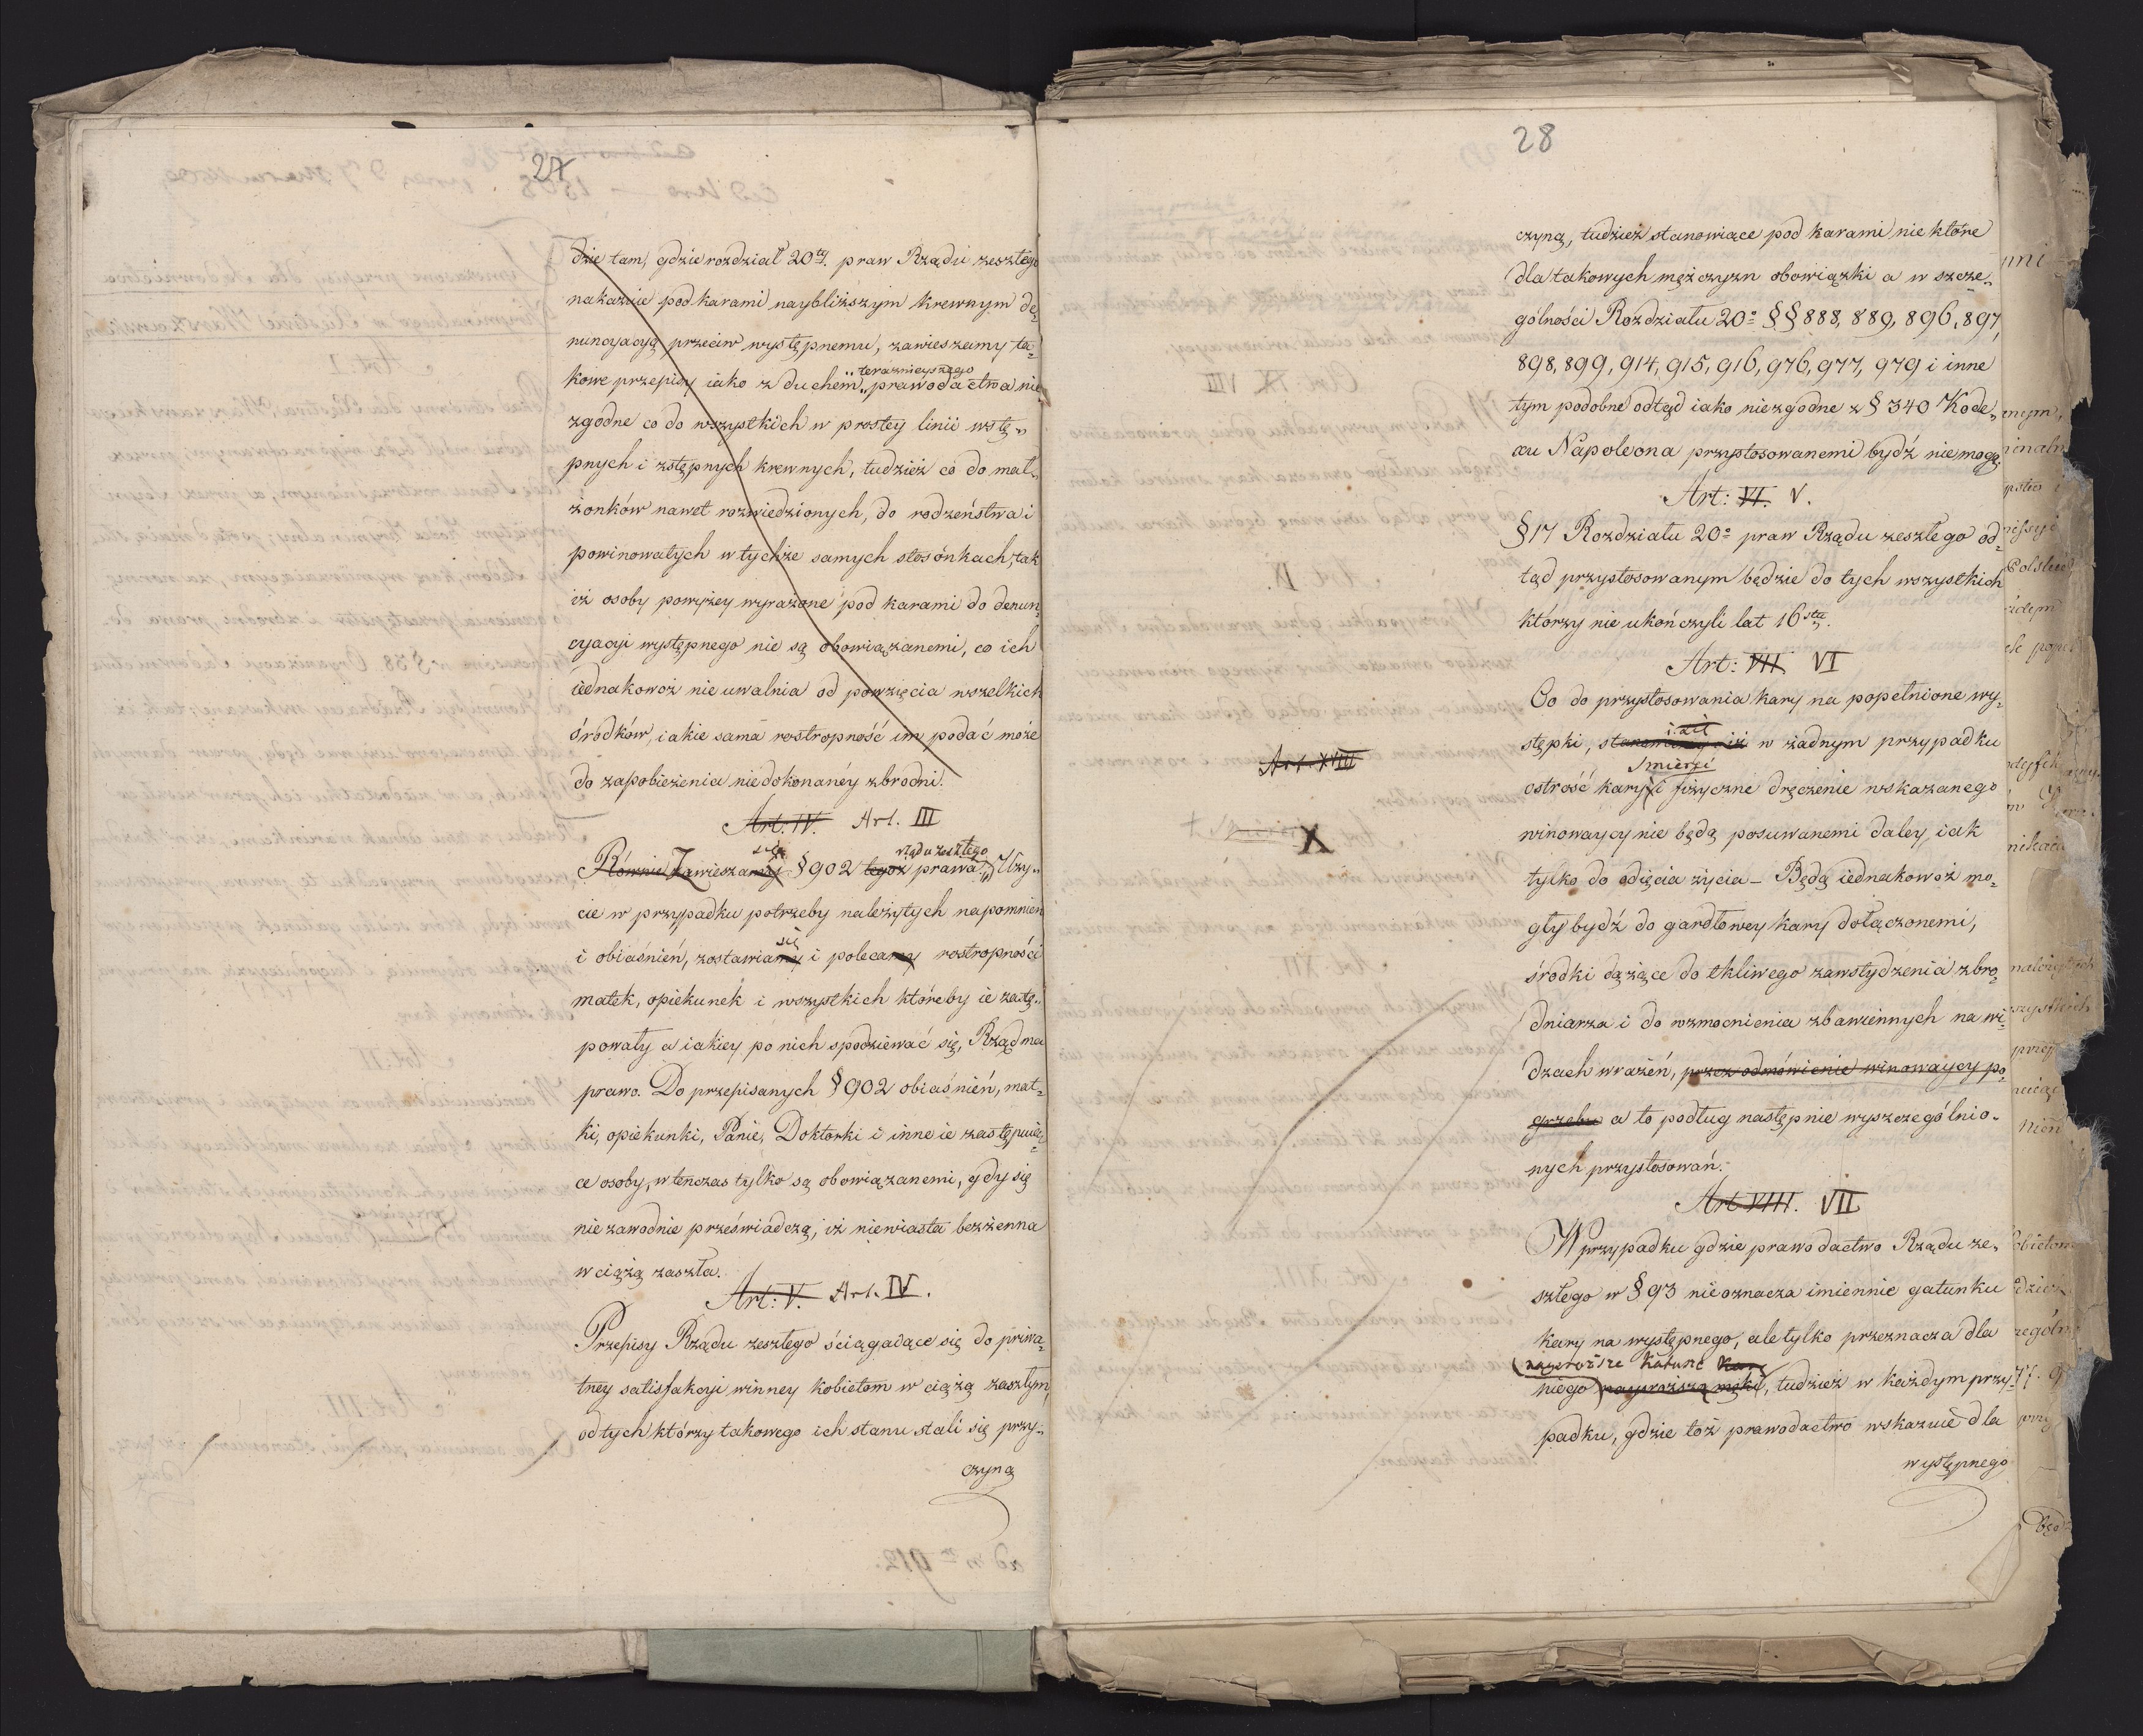 27
dzie tam, gdzie rozdział 20ty. praw Rządu zeszłego
nakazuie pod karami naybliższym krewnym de„
nuncyacyą przeciw występnemu, zawieszamy ta„
teraznieyszego
kowe przepisy iako z duchem prawodactwa nie
zgodne co do wszystkich w prostey linii wstę„
pnych i zstępnych krewnych, tudzież co do mał„
żonków nawet rozwiedzionych, do rodzeństwa i
powinowatych w tychże samych stosónkach, tak
iż osoby powyżey wyrażone pod karami do denun„
cyacyi występnego nie są obowiązanemi, co ich
iednakowoż nie uwalnia od powzięcia wszelkich
środków, iakie sama rostropność im podać może
do zapobieżenia niedokonanéy zbrodni.
Art: IV. Art. III
się rządu zeszłego
Równie Zawieszamy § 902 tegoż prawa. Uży„
cie w przypadku potrzeby należytych napomnień
się
i obiaśnień, zostawiamy i polecamy rostropności
matek, opiekunek i wszystkich któreby ie zastę„
powały a iakiey po nich spodziewać się, Rząd ma
prawo. Do przepisanych § 902 obiaśnień, mat„
ki, opiekunki, Panie, Doktorki i inne ie zastępuią„
ce osoby, w tenczas tylko są obowiązanemi, gdy się
nie zawodnie przeświádczą, iż niewiasta bezżenna
w ciążą zaszła.
Art: V. Art. IV.
Przepisy Rządu zeszłego ściągaiące się do priwa„
tney satisfakcyi winney kobietom w ciążą zaszłym,
od tych którzy takowego ich stanu stali się przy„
czyną
28
czyną, tudzież stanowiące pod karami niektóre
dla takowych mężczyzn obowiązki a w szcze„
gólności Rozdziału 20° §§ 888, 889, 896, 897,
898, 899, 914, 915, 916, 976, 977, 979 i inne
tym podobne odtąd iako niezgodne z § 340 Kode„
xu Napoleona przystosowanemi bydź nie mogą.
Art: VI. V.
§ 17 Rozdziału 20° praw Rządu zeszłego od„
tąd przystosowanym będzie do tych wszystkich
którzy nie ukończyli lat 16stu.
Art: VII VI
Co do przystosowania kary na popełnione wy„
stępki, stanowiemy iż w żadnym przypadku
Smierci
ostrość kary i fizyczne dręczenie wskazanego
winowaycy nie będą posuwanemi daley, iak
tylko do odięcia życia – Będą iednakowoż mo„
gły bydź do gardłowey kary dołączonemi,
środki dążące do tkliwego zawstydzenia zbro„
dniarza i do wzmocnienia zbawiennych na wi„
dzach wrażeń, przez odmówienie winowaycy po„
grzebu a to podług następnie wyszczególnio„
nych przystosowań.
Art VIII. VII
W przypadku gdzie prawodactwo Rządu ze„
szłego w § 93 nie oznacza imiennie gatunku
kary na występnego, ale tylko przeznacza dla
naysroższe katusze
niego naysroższą mękę, tudzież w każdym przy„
padku, gdzie toż prawodactwo wskazuie dla
występnego
Art. XVIII
X